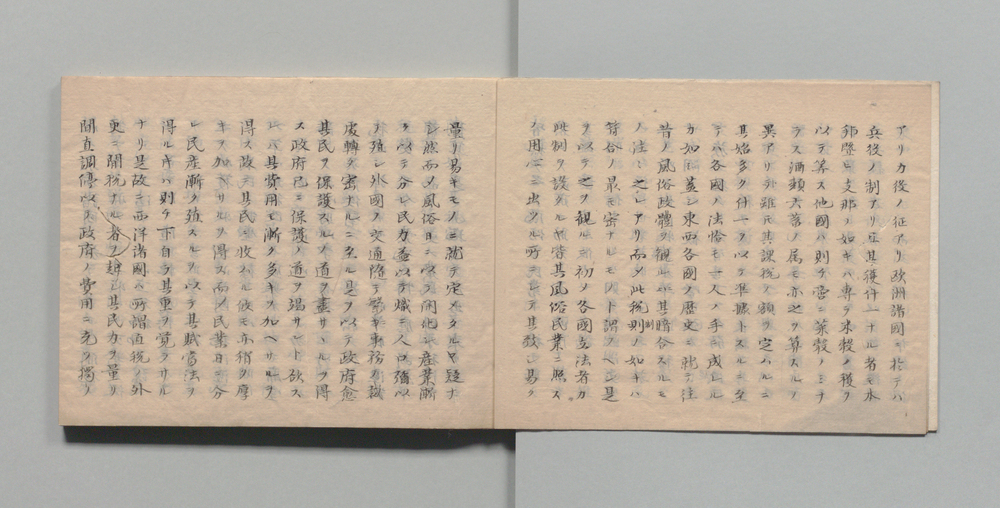 アリカ後ノ征アリ欧洲諸國ニ於テハ
兵役ノ制アリ且其獲什一ナル者モ水
如キハ專ラ米穀ノ穫ヲ
以テ算ス他國ハ則チ啻ニ菓穀ノミナ
ラス酒類ノ属モ亦之ヲ算スルノ
異アリ然雖トモ其課税ノ額ヲ定ムルニ
其始多ク什一ヲ以テ準據トスルニ至
テハ各國ノ法恰モ一人ノ手ニ成レル
カ如シ蓋シ東西各國ノ歴史ニ就テ往
昔ノ風俗政體ヲ観ルニ其暗合スルモ
ノ往々之レアリ而メ此税則ノ如キハ
符合ノ最モ密ナルモノト謂フヘシ是
ヲ以テ之ヲ観ルニ初メ各國立法者カ
此制ヲ設クルヤ皆其風俗民業ニ照ス
ノ用心ニ出タル所ニシテ其数ノ易ク
量リ易キモノニ就テ定メタルヤ疑ナ
シ然而メ風俗日ニ以テ開化シ産業漸
ヲ以テ分レ民力益以テ熾ニ人口殖以
ノ殖シ外國ノ交通隆ニ事務ノ
處轉タ密ナルニ至ル是ヲ以テ政府愈
其民ヲ保護スルノ道ヲ盡サヽルヲ得
ス政府已ニ保護ノ道ヲ竭サント欲ス
レハ其費用モ漸ク多キヲ加ヘサルヲ
得ス故ニ其民ニ收ムル彼モ亦稍ク厚
キヲ加ヘサルヲ得ス而シ民業日ニ分
レ民産漸ク殖スルヲ以テ其賦當法ヲ
得ル片ハ則チ下自ラ其重ヲ覚ヘサル
ナリ是故ニ西洋諸國ハ所謂直税ノ外
更ニ間税ナル者ヲ起シ其民力ヲ量リ
間直調停以テ政府ノ費用ニ充ツ獨リ